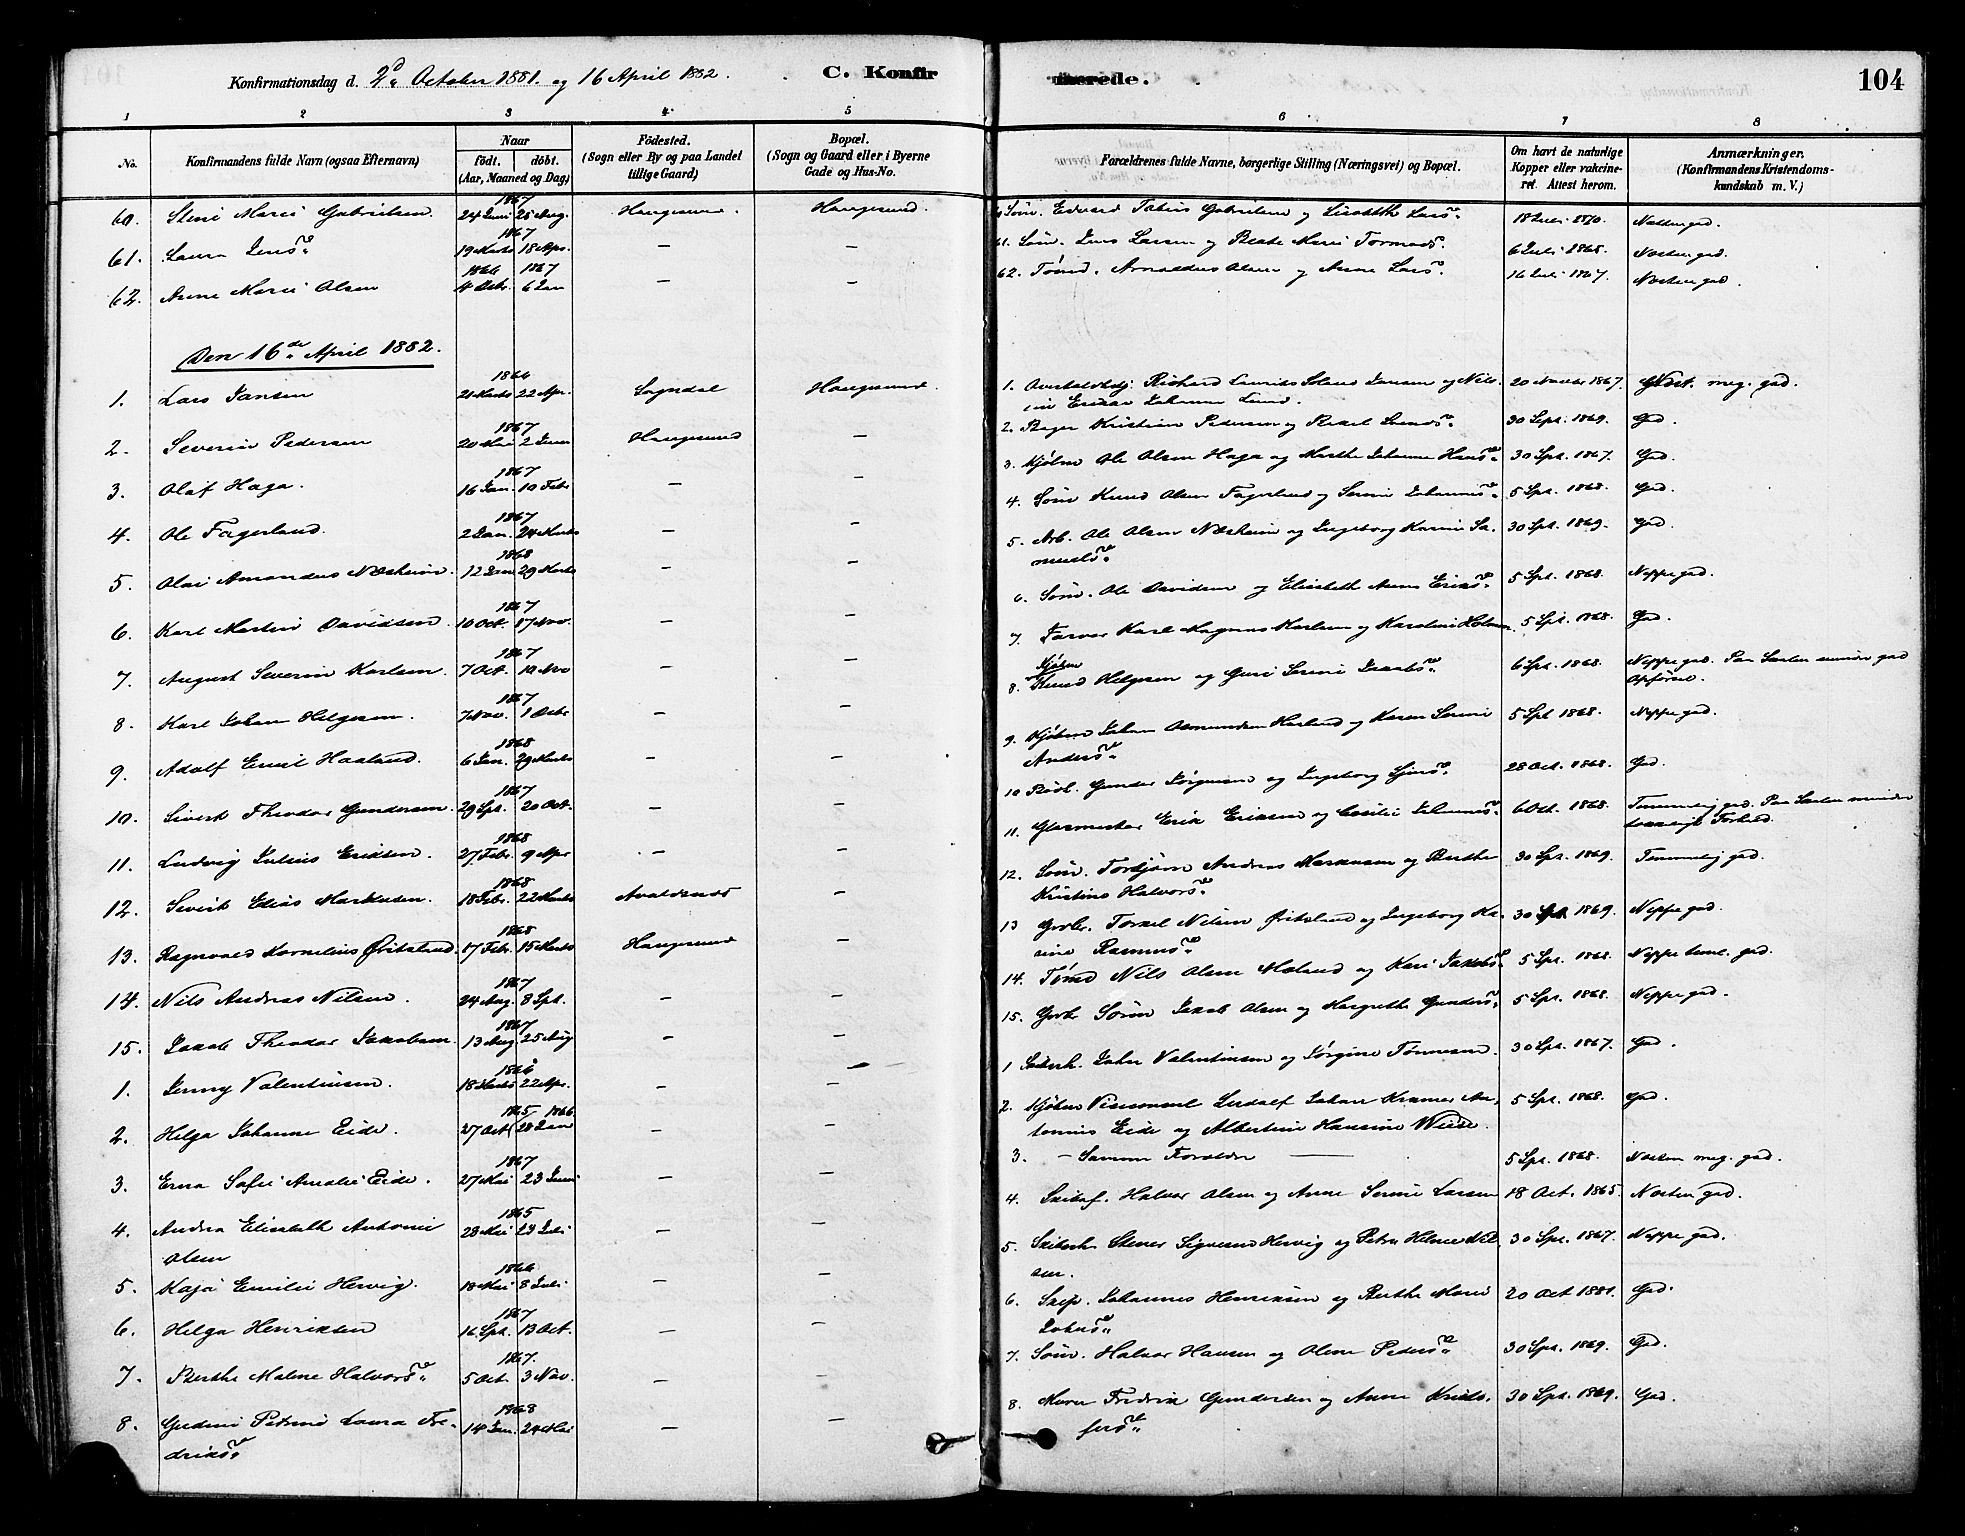 Konfirmationsdag d. 2den October 1881. og 16 April 1882. C. Konfirmerede. 104
1 2 3 4 5 6 7 8
No. Konfirmandens fulde Navn (ogsaa Efternavn) Naar födt. döbt. (Aar, Maaned og Dag) Födested. (Sogn eller By og paa Landet tillige Gaard) Bopæl. (Sogn og Gaard eller i Byerne Gade og Hus-No. Forældrenes fulde Navne, borgerlige Stilling (Næringsvei) og Bopæl. Om havt de naturlige Kopper eller vakcineret. Attest herom. Anmærkninger. (Konfirmandens Kristendomskundskab m. V.)
60. Stine Marie Gabrielsen 1867 24 Juni 25 Aug. Haugesund. Haugesund. Edvard Tobias Gabrielsen og Lisabeth Larsd. 18 Juli 1870. Næsten god.
61. Laura Jensd. 1867 19 Marts 18 Apr. — — 61. Jens Larsen og Beate Marie Tormods. 6 Juli 1868. Næsten god.
62. Anne Marie Olsen 1866 1867 4 Decbr. 6 Jan — — 62. Tømd. Arnoldus Olsen og Anne Larsd. 16 Juli 1867. Næsten god.
Den 16de April 1882.
1. Lars Jansen 1866 21 Marts 22 Apr. Sogndal Haugesund. 1. Richard Laurits Jansen og Nilsine Johanne Lund. 20 Novbr 1867. Godt. meg. god.
2. Severin Pedersen 1867 20 Mai 2 Juni Haugesund — 2. Bager Kristian Pedersen og 30 Sept. 1869. God.
3. Olaf Haga. 1867 16 Jan. 10 Febr — — 3. Kjøbm Ole Olsen Haga og Marthe Johanne Hansd. 30 Spt. 1867. God.
4. Ole Fagerland. 1867 2 Jan. 24 Marts — — 4. Knud Olsen Fagerland og Serine Johannesd. 5 Spt. 1868. God.
5. Olai Amandus Næsheim 1868 12 Jan 29 Marts — — 5. Arb. Ole Olsen Næsheim og Ingeborg Karine Samuelsd. 30 Spt. 1869. God.
6. Karl Martin Davidsen. 1867 10 Oct. 17 Nov. — — 6. Ole Davidsen og Elisabeth Anna Eriksd. 5 Spt. 1868. Neppe god.
7. August Severin Karlsen. 1867 7 Oct. 10 Nov — — 7. Farver Karl Magnus Karlsen og Karoline Holmen. 5 Spt. 1868. God.
8. Karl Johan Helgesen. 1867 7 Nov. 1 Decbr — — 8. Kjøbm Knud Helgesen og Guri Serine Jakobsd. 6 Spt. 1868. Neppe god. Paa Skolen mindre god Opförsel.
9. Adolf Emil Haaland. 1868 6 Jan. 29 Marts — — 9. Kjøbm Johan Osmundsen Haaland og Karen Serine Andersd. 5 Spt 1868. Neppe god.
10. Sivert Theodor Gundersen. 1867 29 Spt. 20 Oct. — — 10 Gunder Jørgensen og Ingeborg 28 Oct. 1868. God.
11. Ludvig Julius Eriksen. 1868 27 Febr. 9 Apr — — 11. Glasmester Erik Eriksen og Cecilie Johannesd. 6 Oct. 1868. Temmelig god. Paa Skolen mindre
12. Sivert Elias Markusen. 1868 18 Febr. 22 Marts Avaldsnes — 12. Torbjørn Andreas Markusen og Berthe Kristine Halvorsd. 30 Spt. 1869. Temmelig god.
13. Ragnvald Kornelius Øritsland. 1868 17 Febr. 15 Marts Haugesund — 13 Torkel Nilsen Øritsland og Ingeborg Karine Rasmusd. 30 Spt. 1869. Neppe god.
14. Nils Andreas Nilsen. 1867 24 Aug. 8 Spt. — — 14. Tømd Nils Olsen og Kari Jakobsd. 5 Spt. 1868. Neppe teml. god.
15. Jakob Theodor Jakobsen. 1867 13 Aug 25 Aug — — 15. Jakob Olsen og Margrethe Gundersd. 5 Spt. 1868. Neppe god.
1. Jenny Valentinsen. 1866 18 Marts 22 Apr. — — 1 Johan Valentinsen og Jørgine Tønnesen. 30 Spt. 1867. God.
2. Helga Johanne Eide. 1865 1866 27 Oct. 28 Jan — — 2. Kjøbm Johan Antonius Eide og Albertine Hansine Wiese. 5 Spt. 1868. God.
3. Erna Sofie Amalie Eide. 1867 27 Mai 23 Juni — — 3. — Samme Forældre — 5 Spt. 1868. Næsten meg. god.
4. Andrea Elisabeth Antonie Olsen 1865 28 Mai 23 Juli — — 4. Halvor Olsen og Anne Serine Larsen 18 Oct. 1865. Næsten god.
5. Kaja Emilie Hervig. 1866 18 Mai 8 Juli — — 5. Stener Sigvesen Hervig og Petra Helene Nilsen. 30 Spt. 1867. Neppe god.
6. Helga Henriksen 1867 16 Spt. 13 Oct. — — 6. Skip. Johannes Henriksen og Berthe Marie Johnsd. 20 Oct 1881. God.
7. Berthe Malene Halvorsd. 1867. 5 Oct. 3 Nov. — — 7. Halvor Hansen og Olene Pedersd. 30 Spt. 1869. God.
8. Gudine Petrine Laura Fredriksd. 1868 14 Jan. 24 Mai — — 8. Murer Fredrik Gundersen og Anne Kristofersd. 30 Spt. 1869. God.